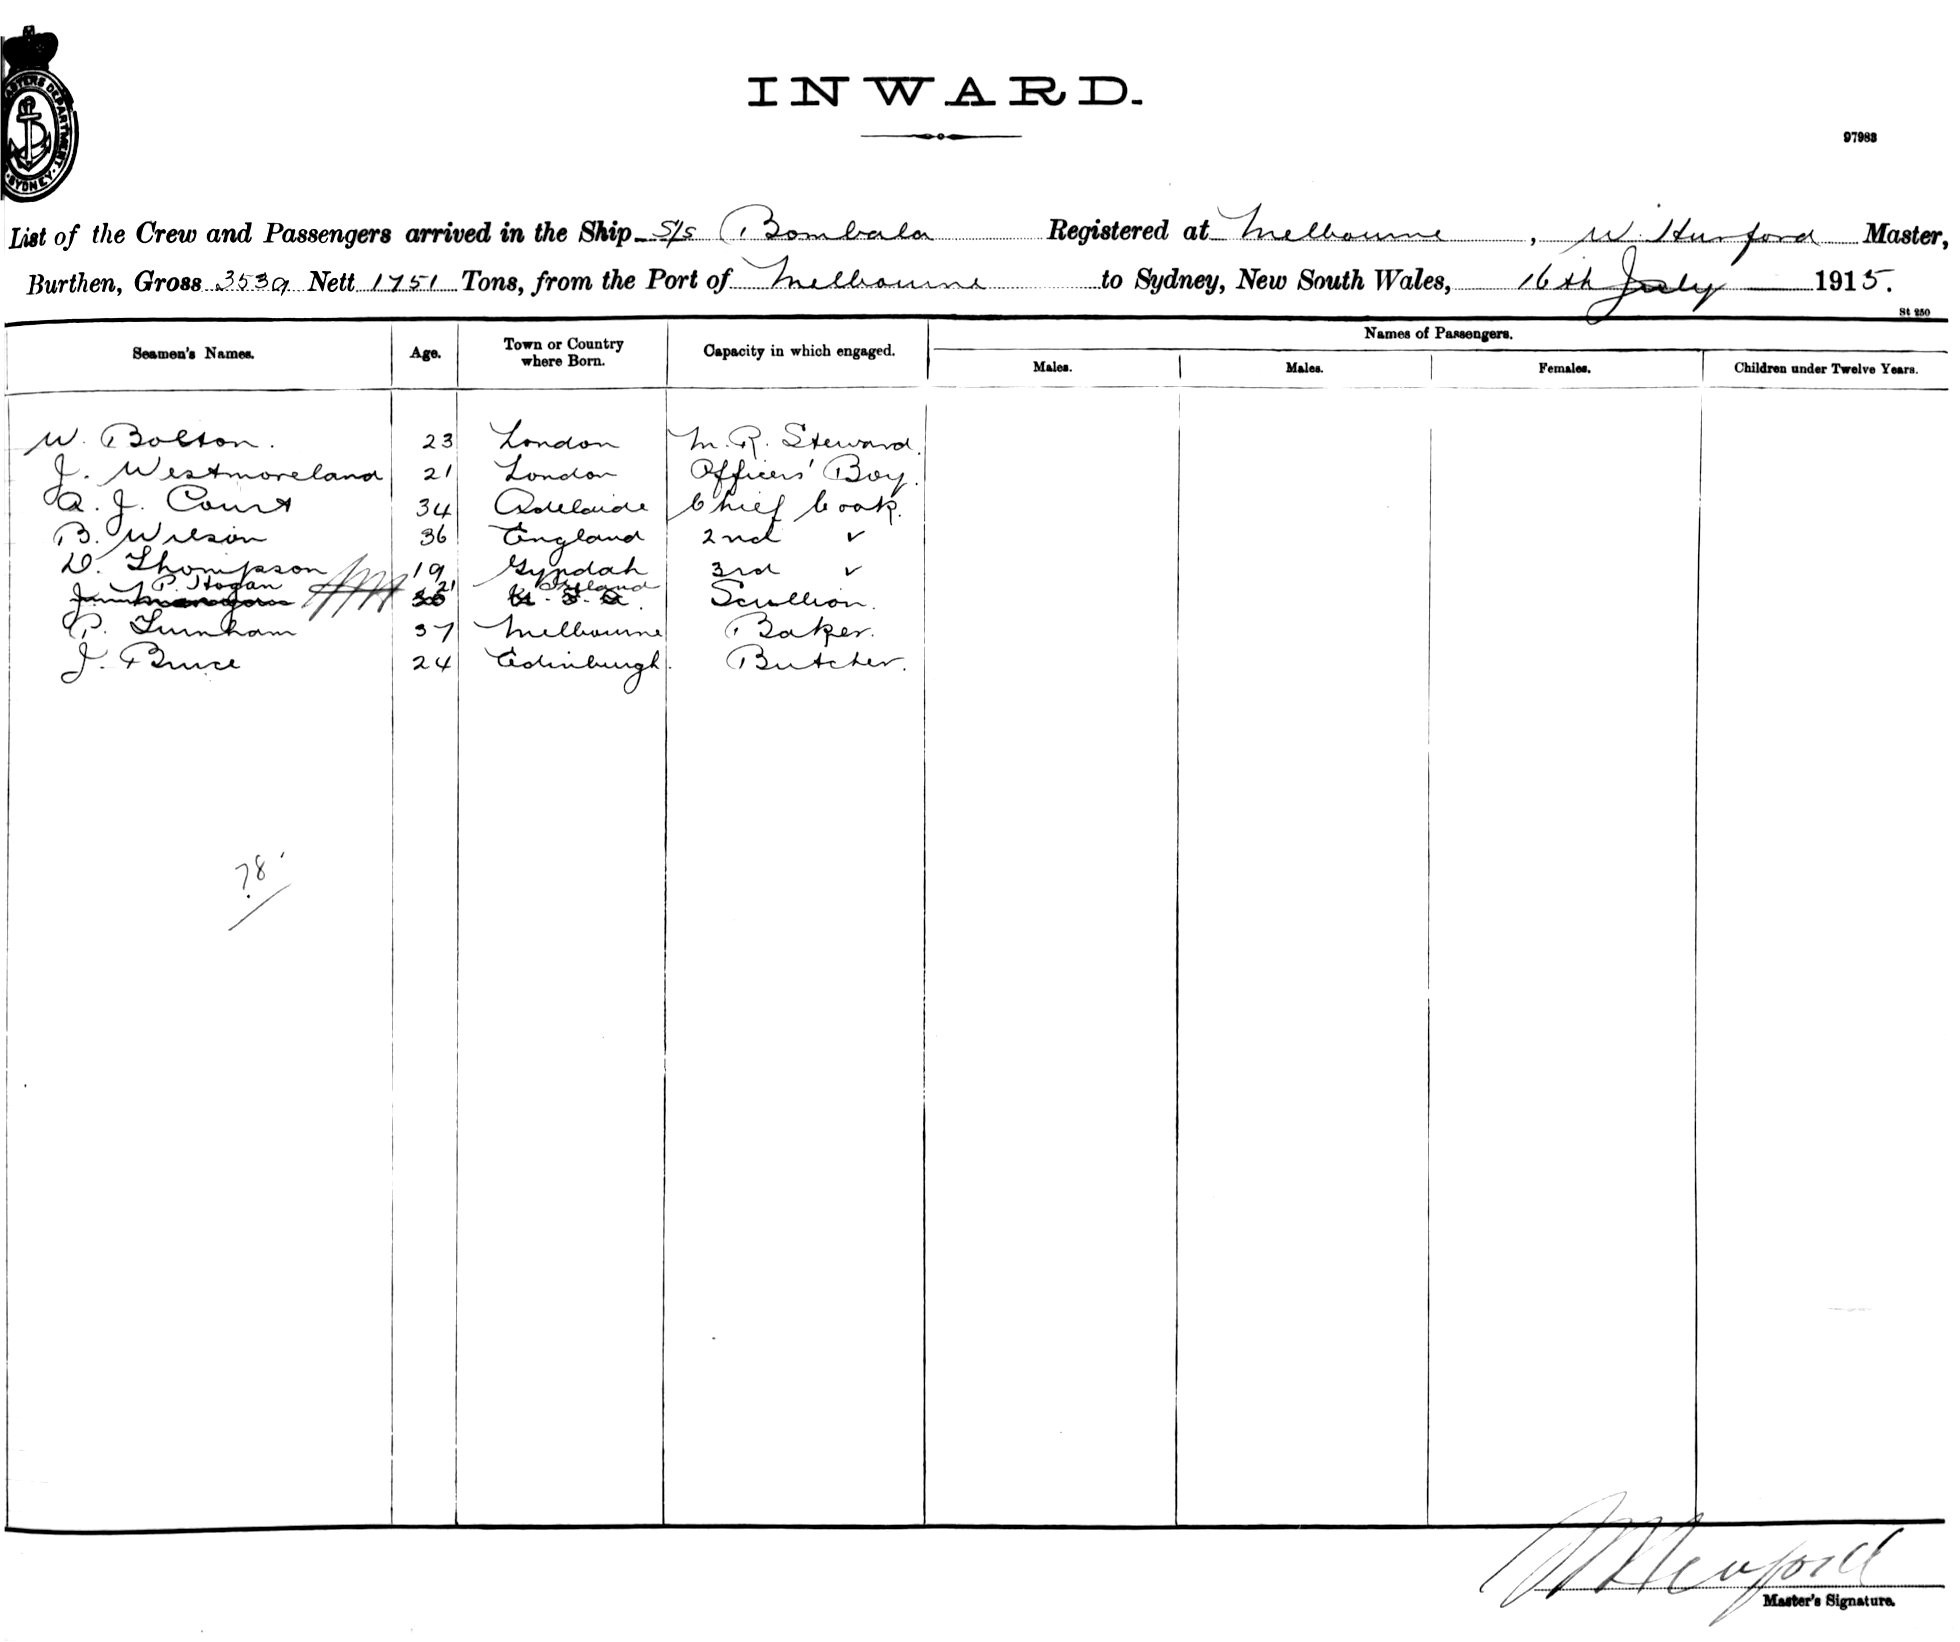 MASTERS DEPARTMENT
SYDNEY
INWARD.
97983
List of the Crew and Passengers arrived in the Ship S/s Bombala Registered at Melbourne, W. Hurford Master,
Burthen, Gross 3539 Nett 1751 Tons, from the Port of Melbourne to Sydney, New South Wales, 16th July 1915.
St 250
Seamen's Names. Age. Town or Country where Born. Capacity in which engaged. Names of Passengers.
Males. Males. Females. Children under Twelve Years.
W. Bolton. 23 London M. R. Steward.
J. Westmoreland 21 London Officers' Boy.
A. J. Court 34 Adelaide Chief Cook.
B. Wilson 36 England 2nd ✓
D. Thompson 19 Gyndah 3rd ✓
P. Hogan 21 Ireland
U. S. A. Scullion.
P. Turnham 37 Melbourne Baker.
J. Bruce 24 Edinburgh. Butcher.
78
W Hurford
Master's Signature.